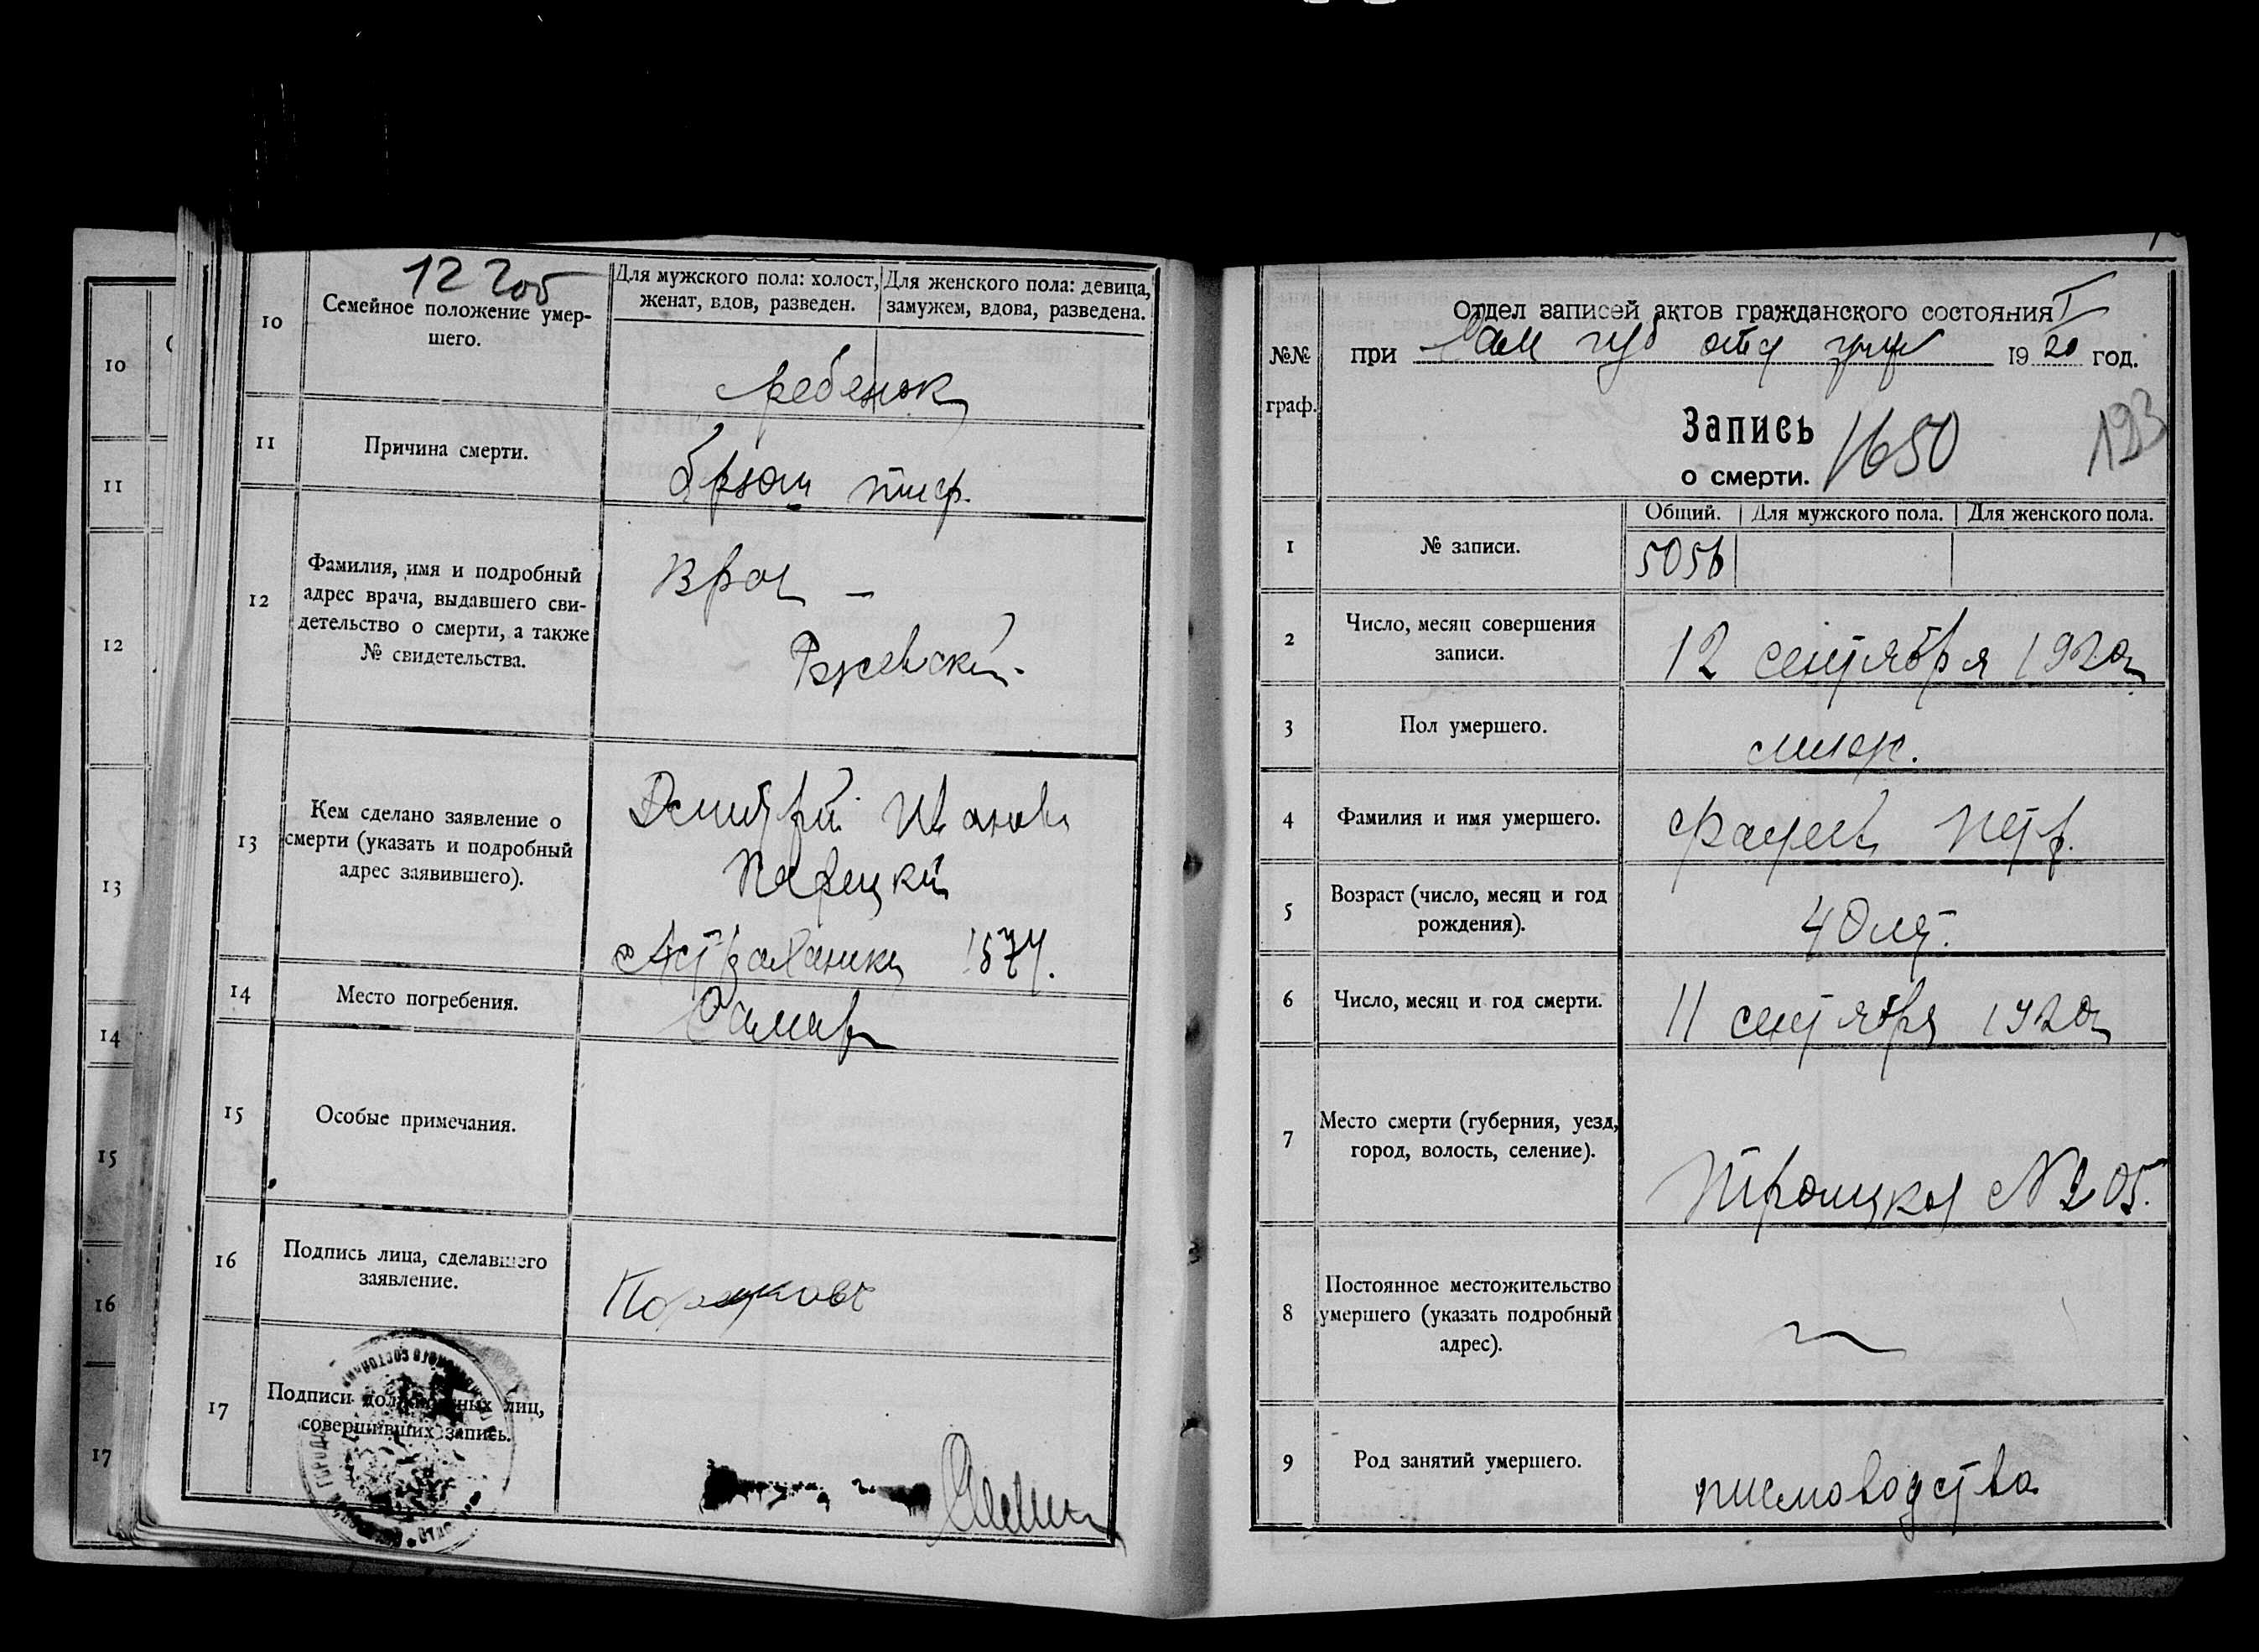 10
11
12
13
14
15
16
17
12 год
10
Семейное положение умер-
шего.
Для мужского пола: холост,
женат, вдов, разведен.
Для женского пола: девица,
замужем, вдова, разведена.
ребенок
11
Причина смерти.
брюш тиф.
12
Фамилия, имя и подробный
адрес врача, выдавшего сви-
детельство о смерти, а также
№ свидетельства.
Врач –
Ржевский
13
Кем сделано заявление о
смерти (указать и подробный
адрес заявившего).
Дмитрий Иванов
Астраханская
14
Место погребения.
Самар
15
Особые примечания.
16
Подпись лица, сделавшего
заявление.
17
Подписи должностных лиц,
совершивших запись.
№№
граф.
Отдел записей актов гражданского состояния
при Сам губ отд упр 1920 год.
Запись
о смерти.
1650
193
Общий. Для мужского пола. Для женского пола.
1
№ записи.
5056
2
Число, месяц совершения
записи.
12 сентября 1920
3
Пол умершего.
муж.
4
Фамилия и имя умершего.
Петр.
5
Возраст (число, месяц и год
рождения).
40 лет.
6
Число, месяц и год смерти.
11 сентября 1920
7
Место смерти (губерния, уезд,
город, волость, селение).
Троицкая № 205.
8
Постоянное местожительство
умершего (указать подробный
адрес).
9
Род занятий умершего.
письмоводства